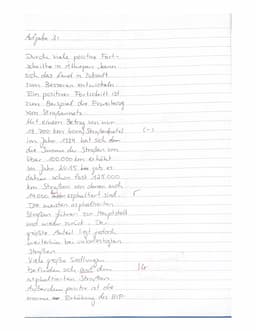 Aufgabe 3:
Durch viele positive Fort-
schritte in Äthiopien kann
sich das Land in Zukunft
zum Besseren entwickeln.
Ein positiver Fortschritt ist
zum Beispiel die Erweiterung
vom Straßennetz.
Mit einem Betrag von nur
km
im Jahr hat sich dann
die Summe der Straßen um
über 100.000 km erhöht.
Im Jahr 2015 gab es
daher schon fast
km Straßen von denen auch
asphaltiert sind.
Die meisten asphaltierten
Straßen führen zur Hauptstadt
und wieder zurück. Der
größte Anteil liegt jedoch
weiterhin bei unbefestigten
Straßen.
Viele große Siedlungen
befinden sich auf den
asphaltierten Straßen.
Außerdem positiv ist die
enorme Erhöhung des BIP